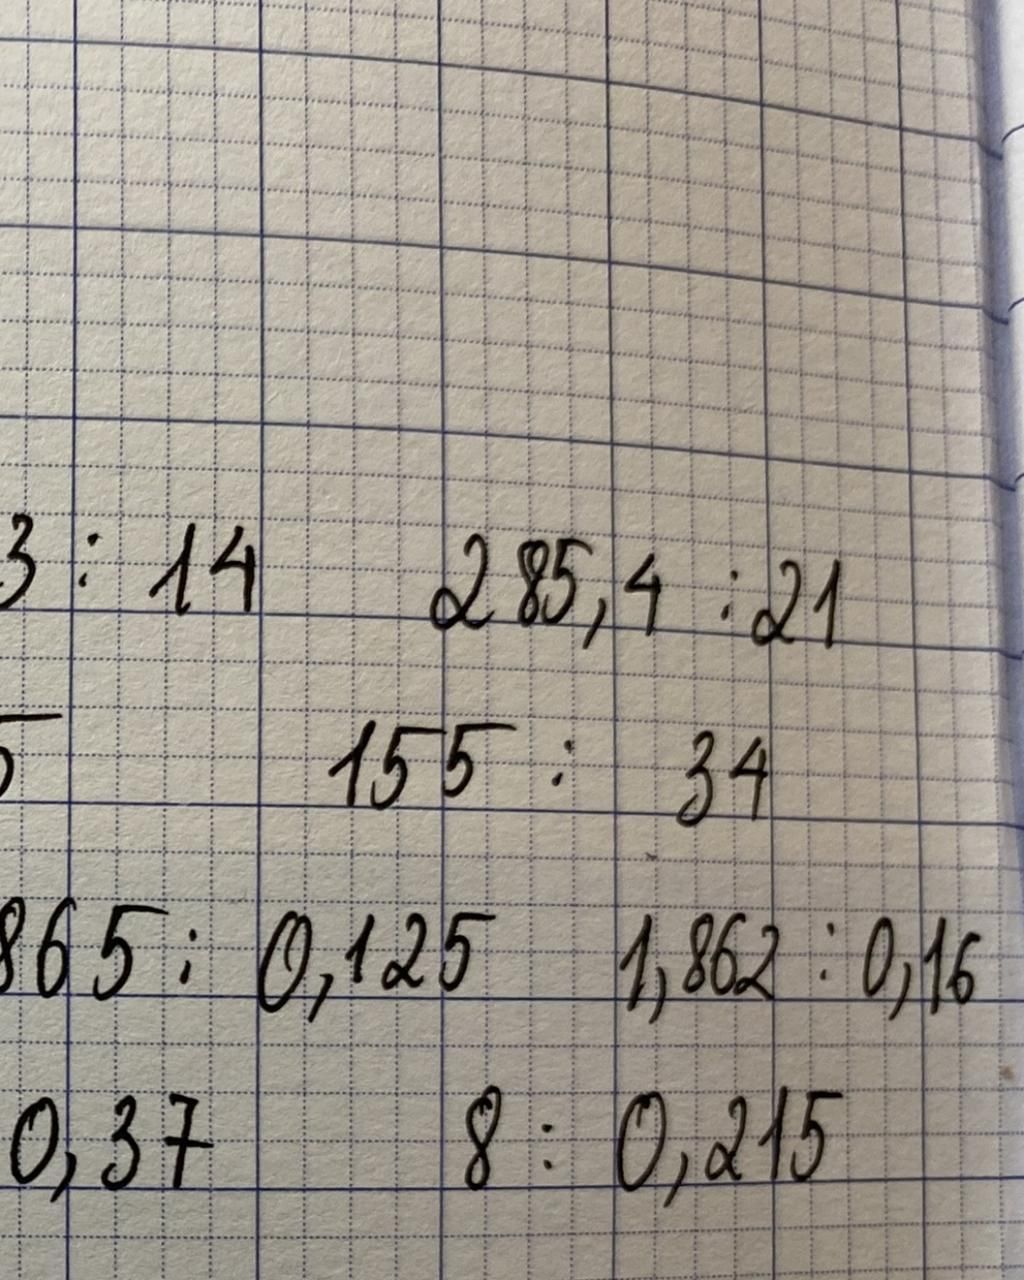 3 : 14 285,4 : 21
5 155 : 34
865 : 0,125 1,862 : 0,16
0,37 8 : 0,215